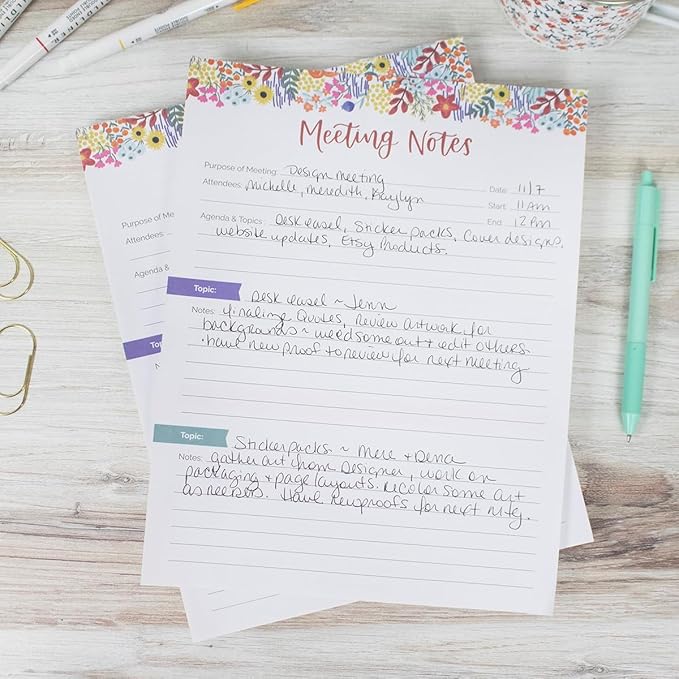 Meeting Notes
Purpose of Meeting: Design meeting
Date: 11/7
Attendees: Michelle, Meredith, Kaylyn
Start: 11 Am
End: 12 Pm
Agenda & Topics: Desk easel, Sticker packs, Cover designs,
website updates, Etsy Products.
Topic: Desk easel ~ Jenn
Notes: Finalize Quotes, review artwork for
backgrounds ~ weed some out + edit others.
· have new proof to review for next meeting
Topic: Sticker packs ~ Mere + Dena
Notes: gather art from Designer, work on
packaging + page layouts. Recolor some art
as needed. Have new proofs for next mtg.
Purpose of M
Attendees:
Agenda &
To
N